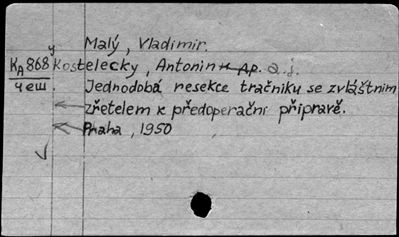 Malý, Vladimir.
КА 868 Kostelecky, Antonin и др. a.j.
чеш. Jednodobá resekce tračniku se zvláštnim
zřetelem k předoperačni připravě.
Praha, 1950